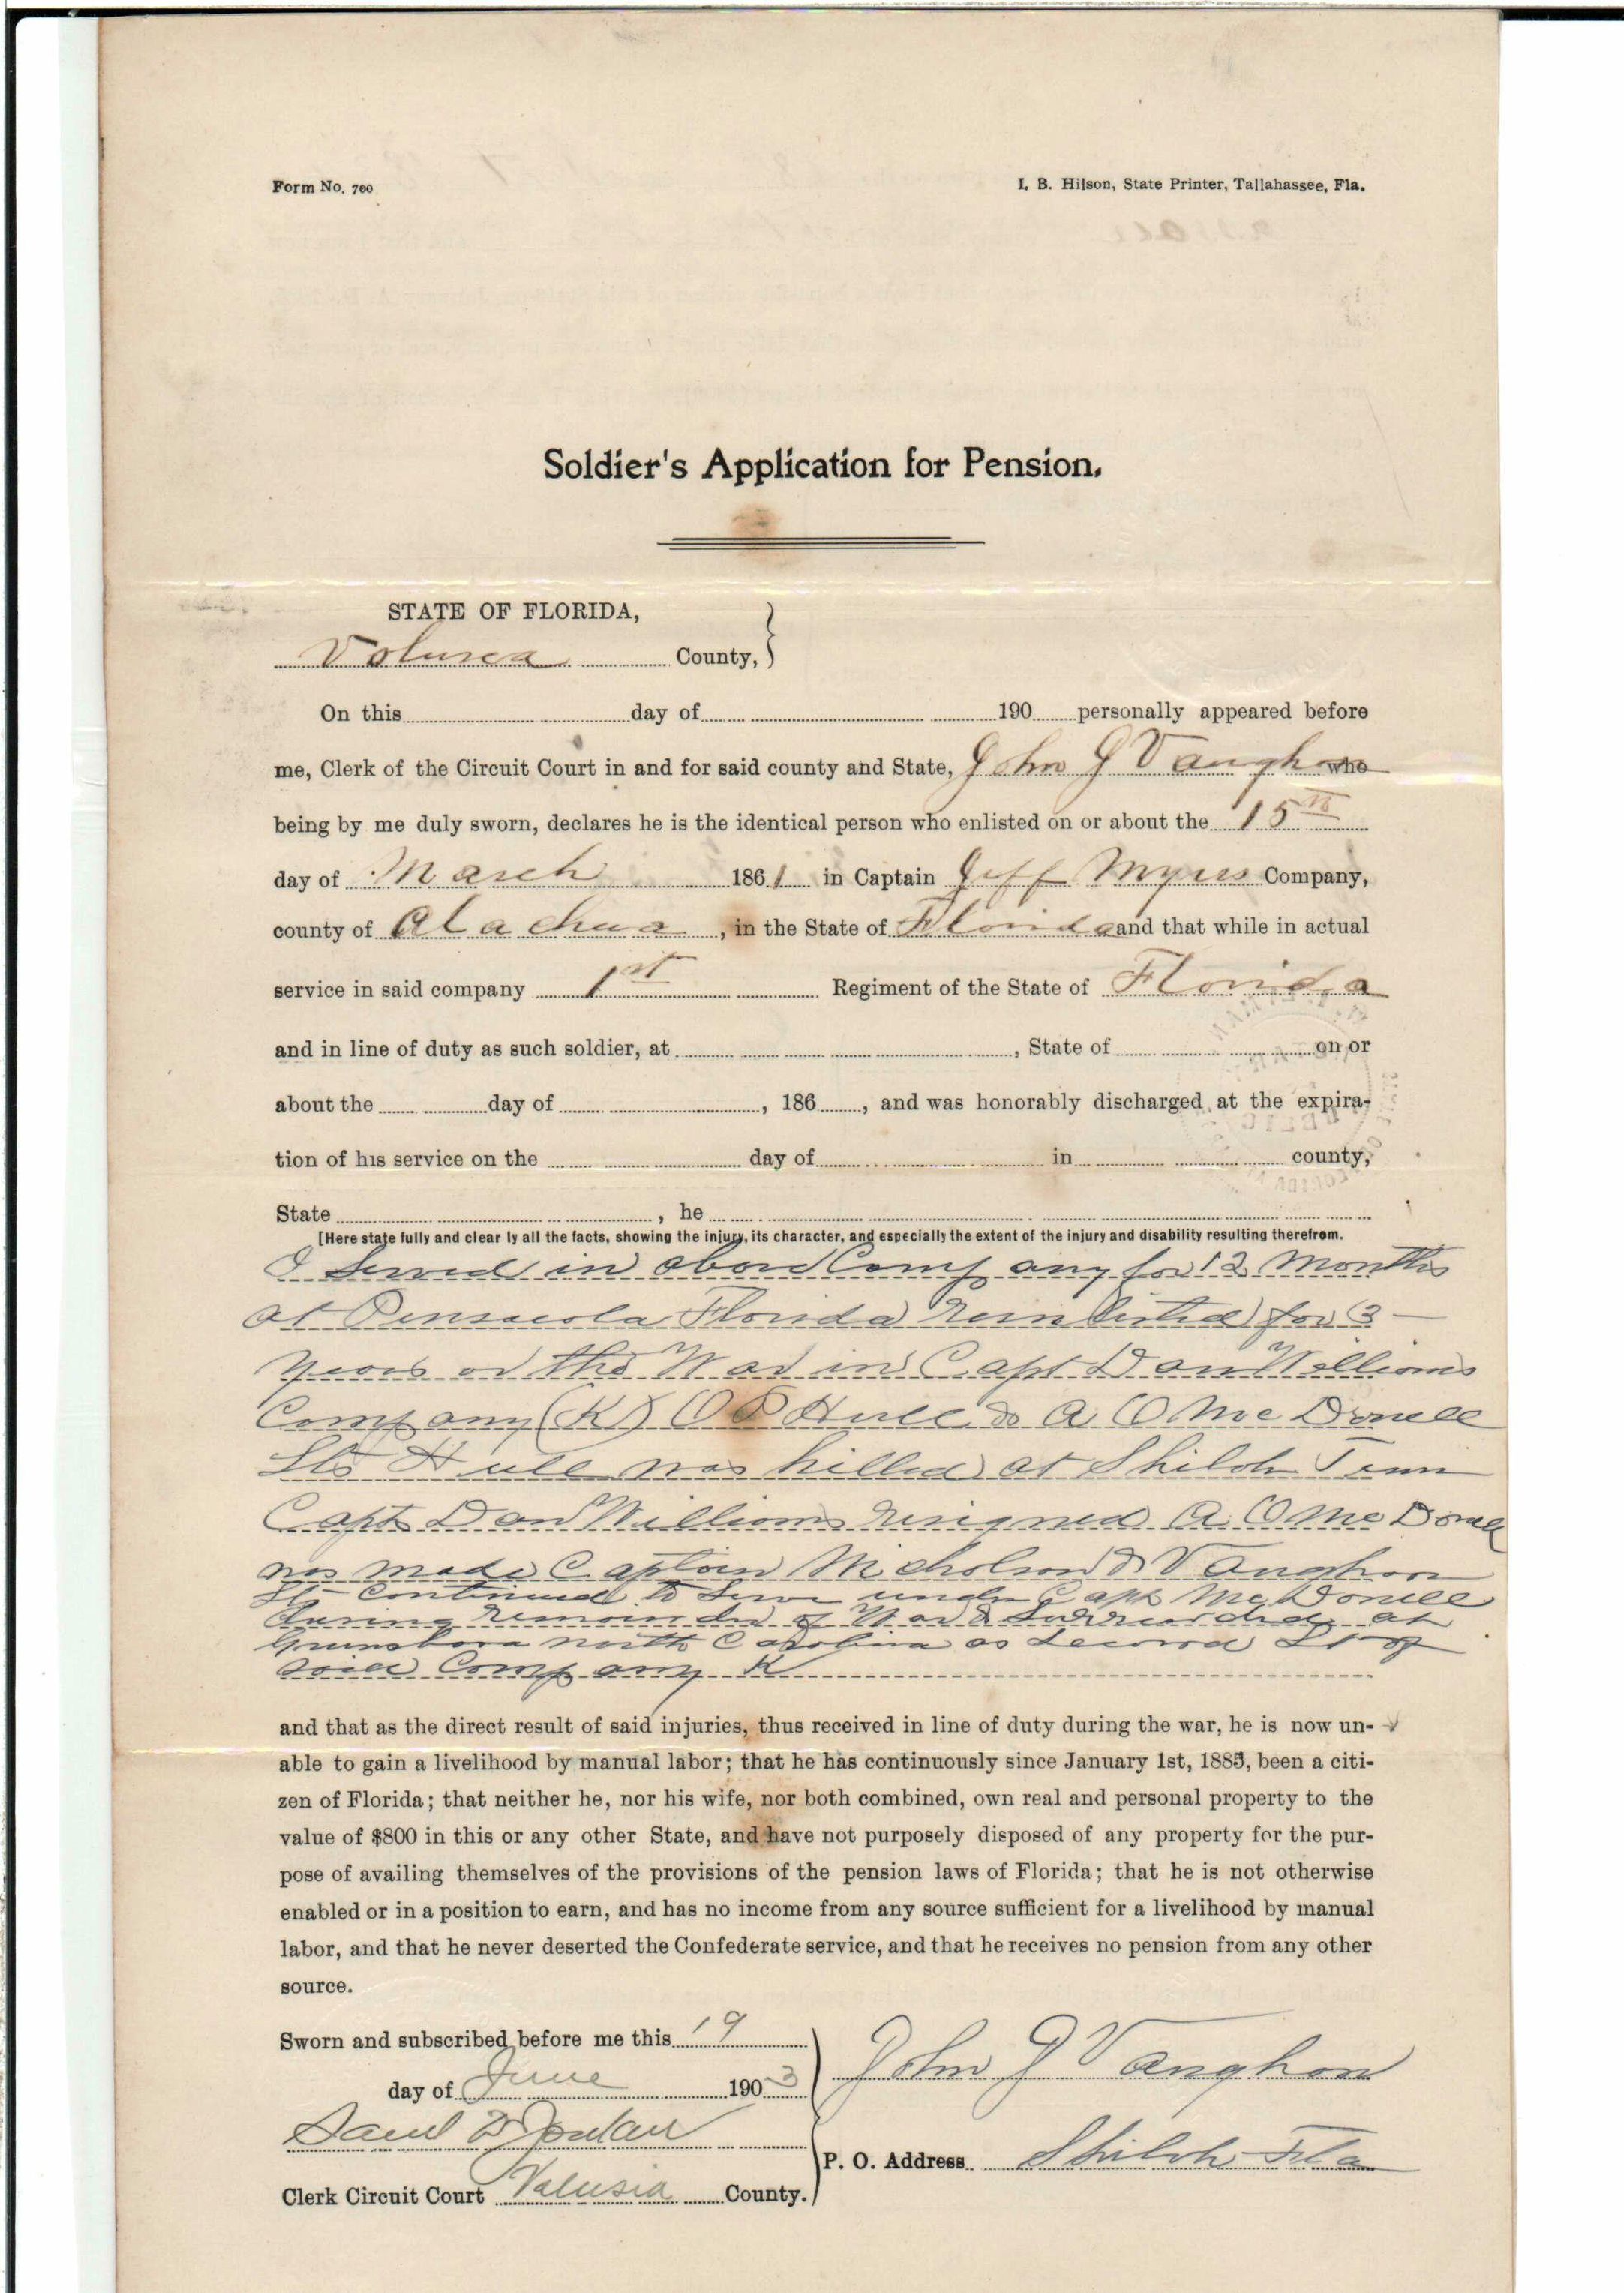 Form No. 700
I. B. Hilson, State Printer, Tallahassee, Fla.
Soldier's Application for Pension.
STATE OF FLORIDA,
Volusia County,
On this day of 190 personally appeared before
me, Clerk of the Circuit Court in and for said county and State, John J Vaughon who
being by me duly sworn, declares he is the identical person who enlisted on or about the 15th
day of March 1861 in Captain Jeff Myers Company,
county of Alachua, in the State of Florida and that while in actual
service in said company 1st Regiment of the State of Florida
and in line of duty as such soldier, at , State of on or
about the day of , 186 , and was honorably discharged at the expira-
tion of his service on the day of in county,
State , he
[Here state fully and clearly all the facts, showing the injury, its character, and especially the extent of the injury and disability resulting therefrom.
I served in above Company for 12 Months
at Pensacola Florida reinlisted for 3
years or the War in Capt Dan Williams
Company (K) O P Hull & A O McDonell
Lts Hull was killed at Shiloh Tenn
Capt Dan Williams resigned A. O McDonell
was made Captain Nicholson & Vaughon
Lts continued to serve under Capt McDonell
during remainder of War & surrendred at
Greensboro north Carolina as Second Lt of
said Company K
and that as the direct result of said injuries, thus received in line of duty during the war, he is now un-
able to gain a livelihood by manual labor; that he has continuously since January 1st, 1885, been a citi-
zen of Florida; that neither he, nor his wife, nor both combined, own real and personal property to the
value of $800 in this or any other State, and have not purposely disposed of any property for the pur-
pose of availing themselves of the provisions of the pension laws of Florida; that he is not otherwise
enabled or in a position to earn, and has no income from any source sufficient for a livelihood by manual
labor, and that he never deserted the Confederate service, and that he receives no pension from any other
source.
Sworn and subscribed before me this 19
day of June 1903
John J Vaughon
Saml D Jordan
P. O. Address Shiloh Fla
Clerk Circuit Court Volusia County.